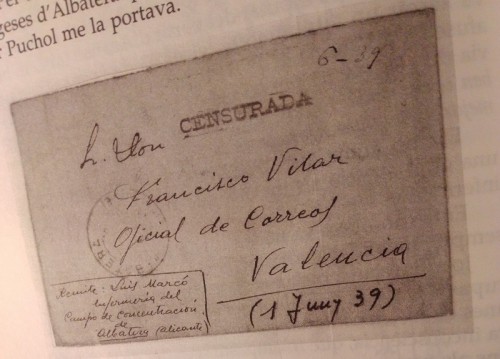 geses d'Albatera
r Puchol me la portava.
6-39
CENSURADA
Sr. Don
Francisco Vilar
Oficial de Correos
Valencia
(1 Juny 39)
Remite: Luis Marcó
Enfermería del
Campo de Concentración
de
Albatera (Alicante)